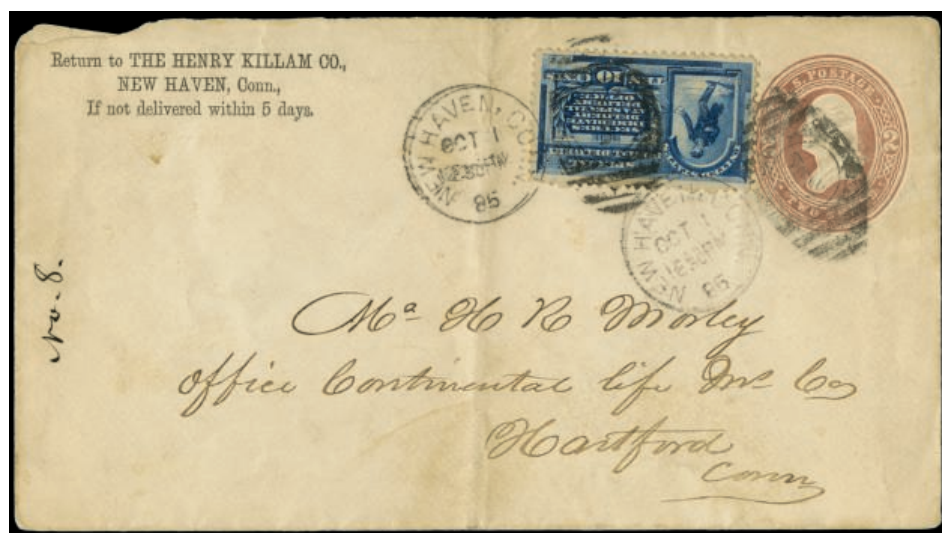 Return to THE HENRY KILLAM CO.,
NEW HAVEN, Conn.,
If not delivered within 5 days.
NEW HAVEN, CONN.
OCT 1
1230PM
85
U.S. POSTAGE
TWO
NEW HAVEN, CONN.
OCT 1
1230PM
85
No. 8.
H R Morley
Office Continental life Ins Co
Hartford
Conn